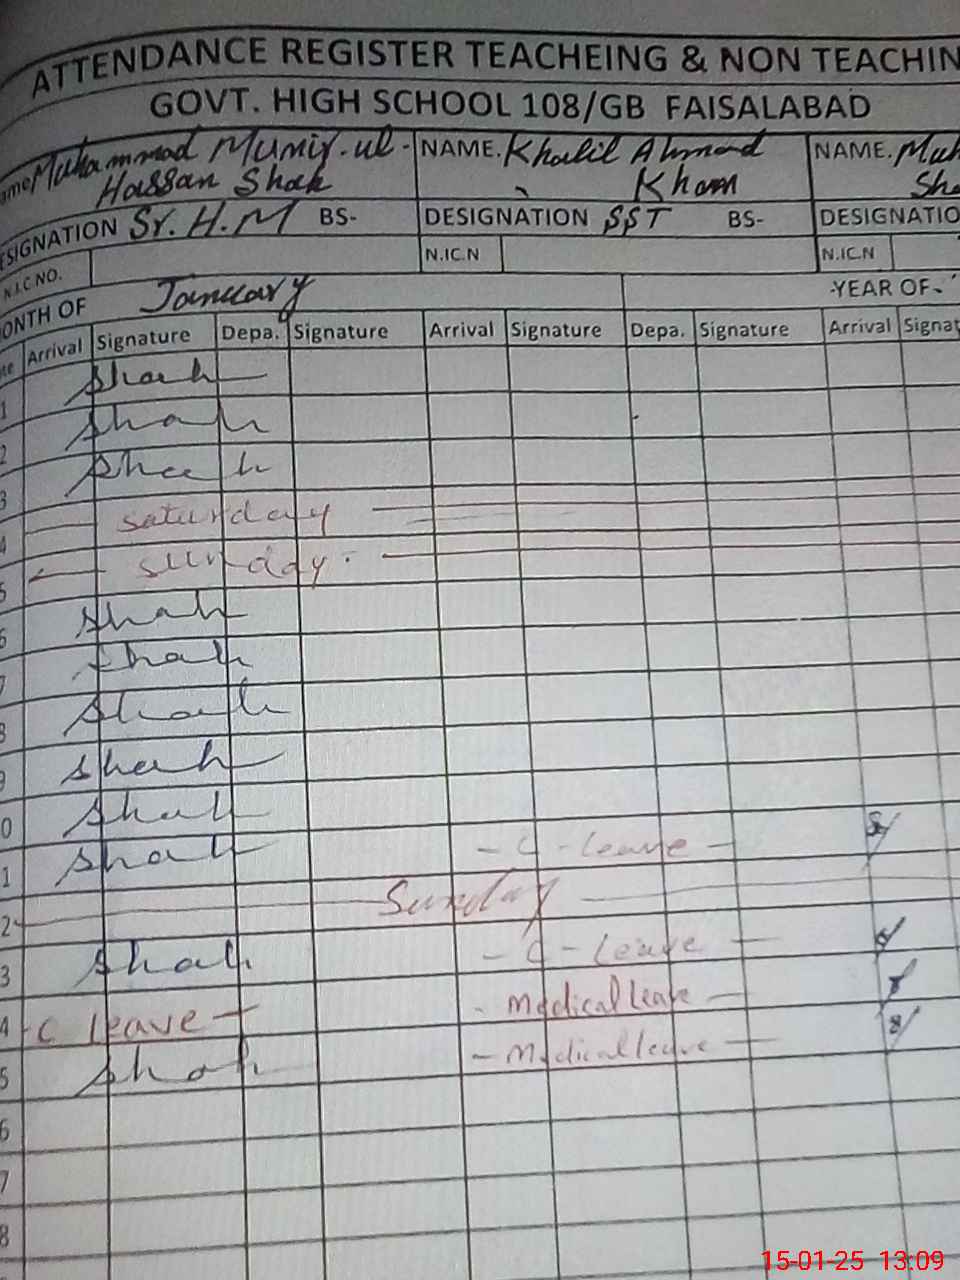 ATTENDANCE REGISTER TEACHEING & NON TEACHIN
GOVT. HIGH SCHOOL 108/GB FAISALABAD
ame Muhammad Munir-ul- NAME. Khalil Ahmad NAME. Muh
Hassan Shah Khan Sha
ESIGNATION Sr. H.M BS- DESIGNATION SST BS- DESIGNATIO
N.I.C.NO. N.IC.N N.IC.N
ONTH OF January YEAR OF-
te Arrival Signature Depa. Signature Arrival Signature Depa. Signature Arrival Signat
1 Shah
2 Shah
3 Shah
4 saturday
5 sunday
6 Shah
7 Shah
8 Shah
9 Shah
0 Shah
1 Shah - C - Leave -
2 Sunday
3 Shah - C - Leave -
4 - C Leave - - Medical leave -
5 Shah - Medical leave -
6
7
8
15-01-25 13:09